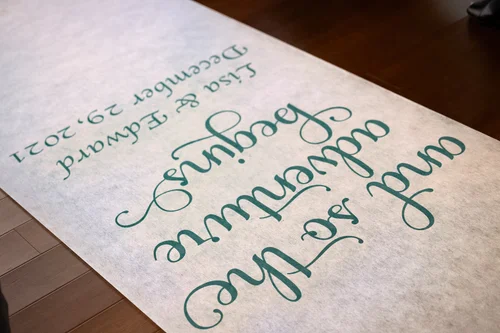 and so the
adventure
begins
Lisa & Edward
December 29, 2021